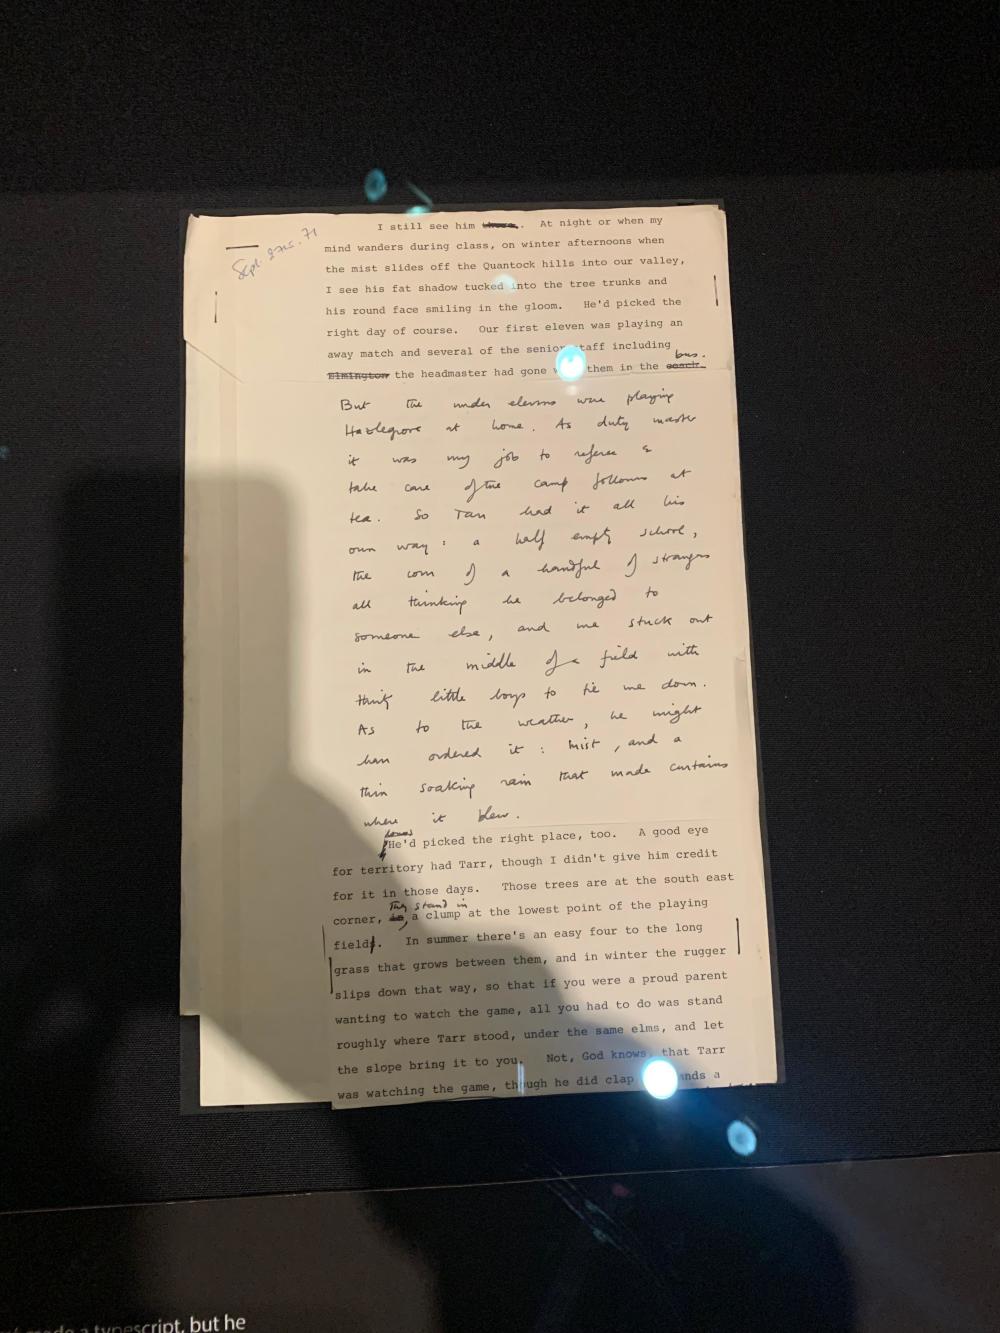 Sept. 71
I still see him there. At night or when my
mind wanders during class, on winter afternoons when
the mist slides off the Quantock hills into our valley,
I see his fat shadow tucked into the tree trunks and
his round face smiling in the gloom. He'd picked the
right day of course. Our first eleven was playing an
away match and several of the senior staff including
bus.
Elmington the headmaster had gone them in the coach.
But the under elevens were playing
Hazlegrove at home. As duty master
it was my job to referee &
take care of the camp followers at
tea. So Tarr had it all his
own way: a half empty school,
the corn of a handful of strangers
all thinking he belonged to
someone else, and me stuck out
in the middle of a field with
thirty little boys to tie me down.
As to the weather, he might
have ordered it: mist, and a
thin soaking rain that made curtains
where it blew.
He'd picked the right place, too. A good eye
for territory had Tarr, though I didn't give him credit
for it in those days. Those trees are at the south east
They stand in
corner, a clump at the lowest point of the playing
field. In summer there's an easy four to the long
grass that grows between them, and in winter the rugger
slips down that way, so that if you were a proud parent
wanting to watch the game, all you had to do was stand
roughly where Tarr stood, under the same elms, and let
the slope bring it to you. Not, God knows, that Tarr
was watching the game, though he did clap a
a typescript, but he